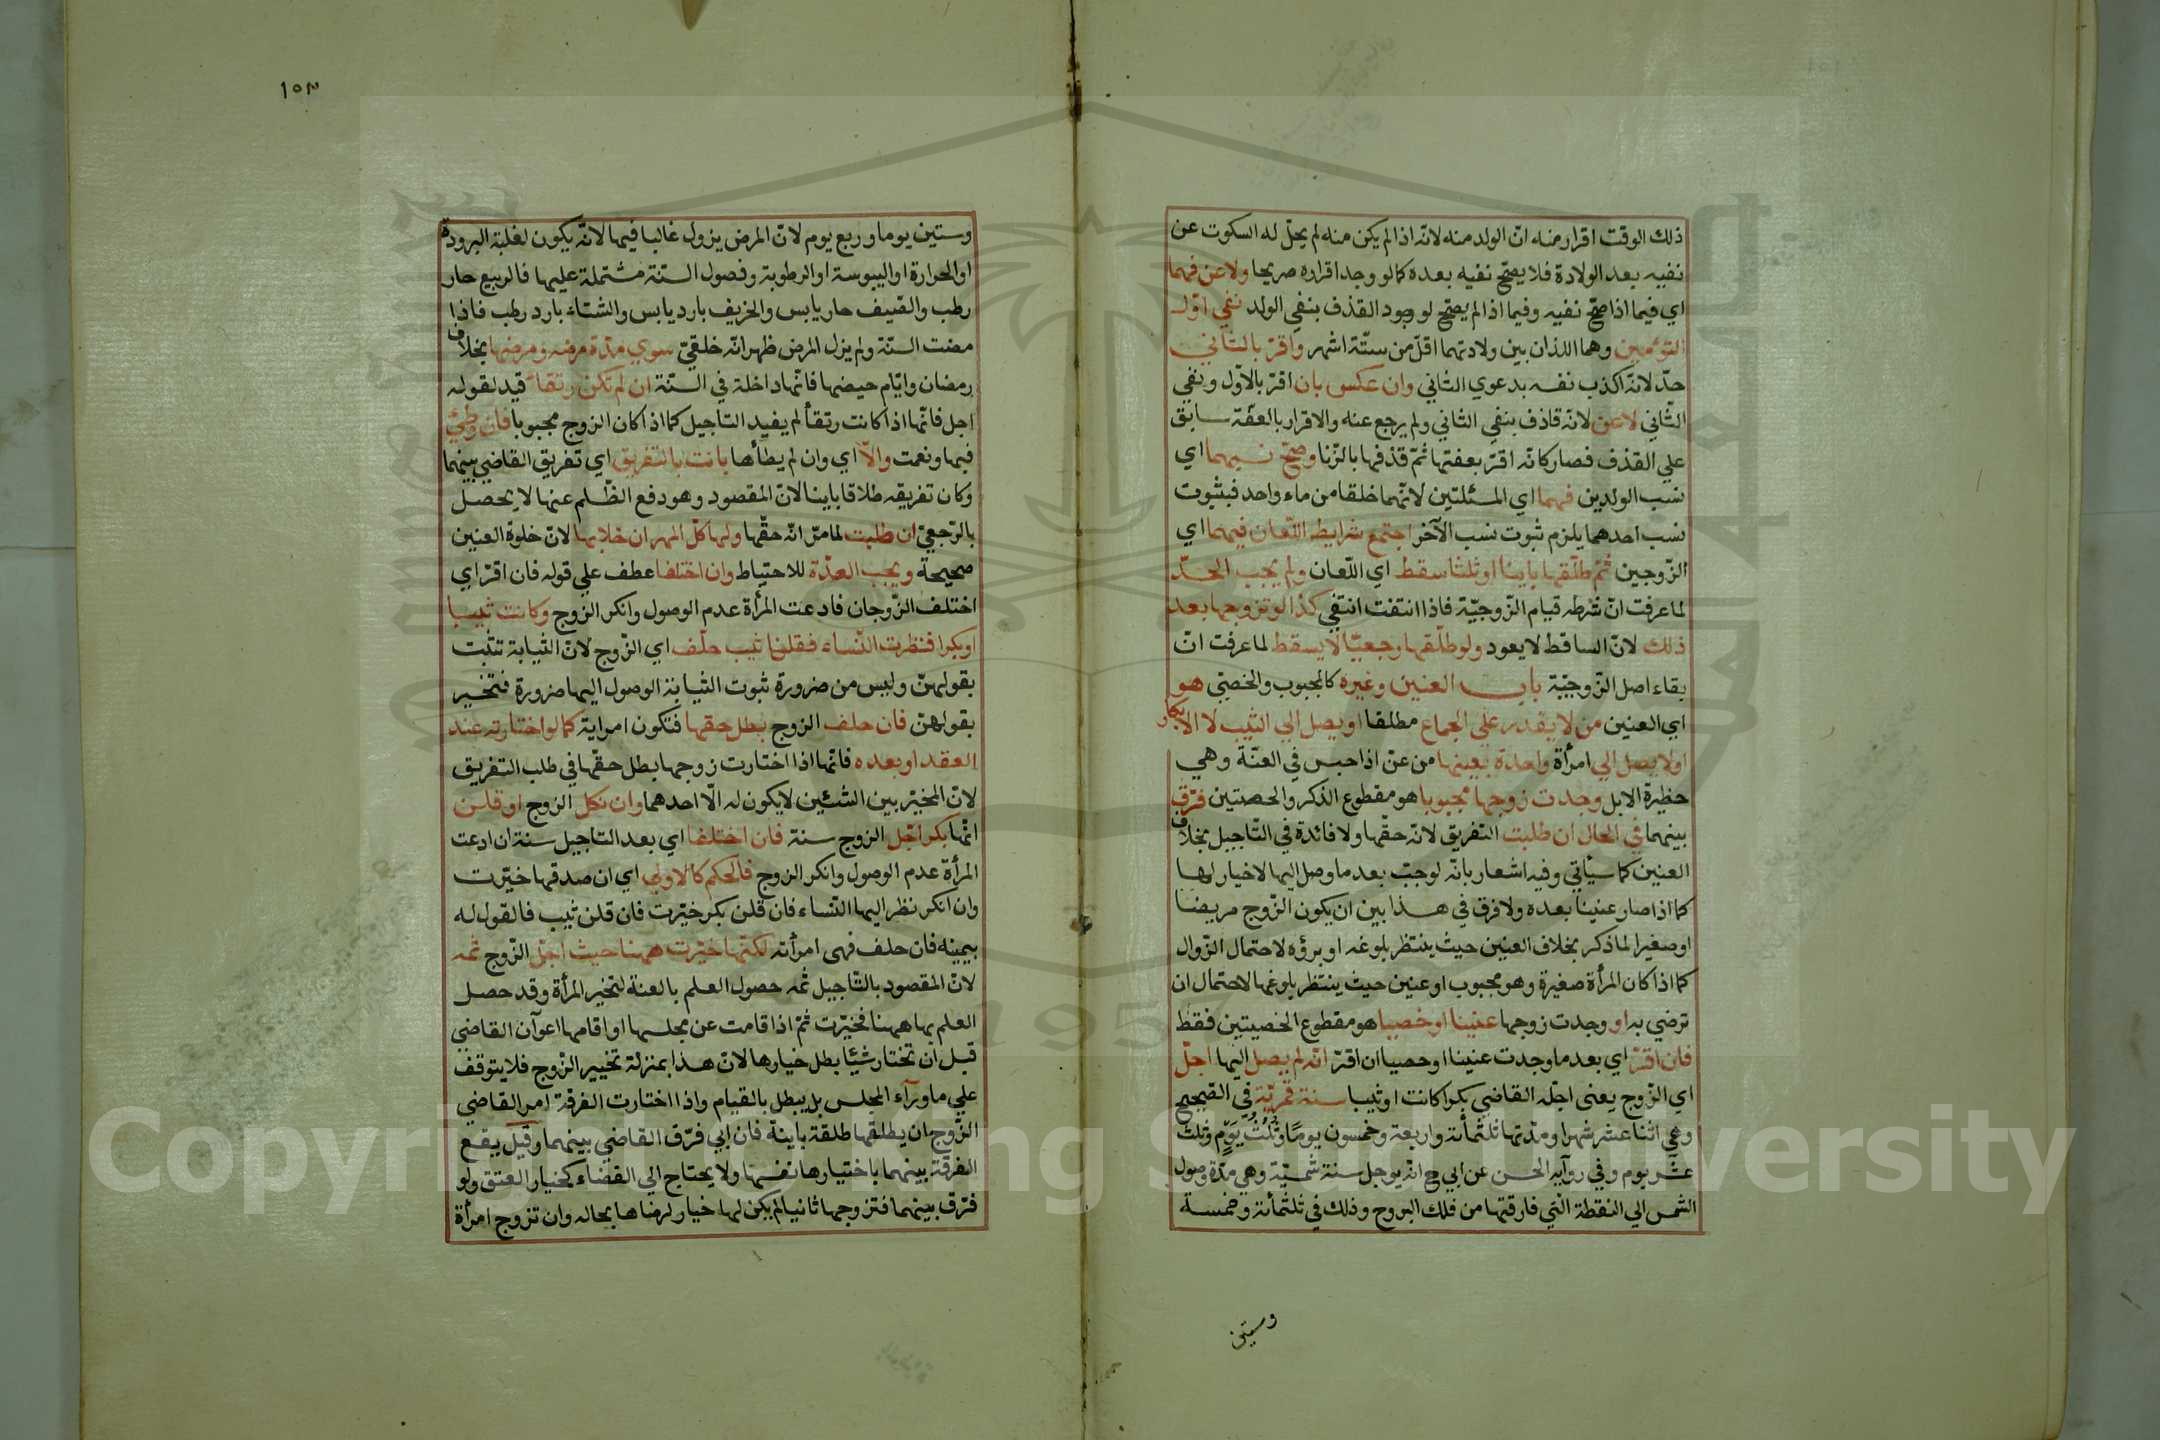 ذلك الوقت اقرار منه انّ الولد منه لانّه اذا لم يكن منه لم يحلّ له السكوت عن
نفيه بعد الولادة فلا يصحّ نفيه بعده كما لو وجد اقراره صريحا ولاعن فيهما
اي فيما اذا صحّ نفيه وفيما اذا لم يصحّ لوجود القذف بنفي الولد نفي اوّل
التؤمين وهما اللذان بين ولادتهما اقلّ من ستّة اشهر واقرّ بالثاني
حدّ لانّه اكذب نفسه بدعوي الثاني وان عكس بان اقرّ بالاوّل ونفي
الثّاني لاعن لانّه قاذف بنفي الثاني ولم يرجع عنه والاقرار بالعفّة سابق
علي القذف فصار كانّه اقرّ بعفتها ثمّ قذفها بالزّنا وصحّ نسبهما اي
نسب الولدين فيهما اي المسئلتين لانّهما خلقا من ماء واحد فبثبوت
نسب احدهما يلزم ثبوت نسب الآخر اجتمع شرايط اللّعان فيهما اي
الزّوجين ثمّ طلّقها باينا او ثلثا سقط اي اللّعان ولم يجب الحدّ
لما عرفت انّ شرطه قيام الزّوجيّة فاذا انتفت انتفي كذا لو تزوجها بعد
ذلك لانّ الساقط لا يعود ولو طلّقها رجعيّا لا يسقط لما عرفت انّ
بقاء اصل الزّوجيّة باب العنين وغيره كالمجبوب والخصيّ هو
اي العنين من لا يقدر علي الجماع مطلقا او يصل الي الثيب لا الابكار
او لا يصل الي امرأة واحدة بعينها من عنّ اذا حبس في العنّة وهي
حظيرة الابل وجدت زوجها مجبوبا هو مقطوع الذكر والخصيتين فرّق
بينهما في الحال ان طلبت التفريق لانّه حقّها ولا فائدة في التّاجيل بخلاف
العنين كما سيأتي وفيه اشعار بانّه لو جبّ بعد ما وصل اليها لا خيار لها
كما اذا صار عنينا بعده ولا فرق في هذا بين ان يكون الزّوج مريضا
او صغيرا لما ذكر بخلاف العنين حيث ينتظر بلوغه او برؤه لاحتمال الزّوال
كما اذا كان المرأة صغيرة وهو مجبوب او عنين حيث ينتظر بلوغها لاحتمال ان
ترضي به او وجدت زوجها عنينا او خصيا هو مقطوع الخصيتين فقط
فان اقرّ اي بعد ما وجدت عنينا او خصيا ان اقرّ انّه لم يصل اليها اجّل
اي الزّوج يعني اجّله القاضي بكرا كانت او ثيبا سنة قمريّة في الصّحيح
وهي اثنا عشر شهرا ومدّتها ثلثمأئة واربعة وخمسون يومًا وثُلُثُ يومٍ وثلث
عشر يوم وفي رواية الحسن عن ابي ح انّه يوجل سنة شمسيّة وهي مدّة وصول
الشمس الي النقطة الّتي فارقتها من فلك البروج وذلك في ثلثمأئة وخمسة
وستين
١٥٣
وستين يوما وربع يوم لانّ المرض يزول غالبا فيها لانّه يكون لغلبة البرودة
او الحرارة او اليبوسة او الرطوبة وفصول السّنة مشتملة عليها فالربيع حار
رطب والصّيف حار يابس والخريف بارد يابس والشتاء بارد رطب فاذا
مضت السّنة ولم يزل المرض ظهر انّه خلقيّ سوي مدّة مرضه ومرضها بخلاف
رمضان وايّام حيضها فانّها داخلة في السّنة ان لم تكن رتقاء قيد لقوله
اجل فانّها اذا كانت رتقأ لم يفيد التاجيل كما اذا كان الزوج مجبوبا فان وطئ
فبها ونعمت والّا اي وان لم يطأها بانت بالتفريق اي تفريق القاضي بينهما
وكان تفريقه طلاقا باينا لانّ المقصود وهو دفع الظّلم عنها لا يحصل
بالرّجعيّ ان طلبت لما مرّ انّه حقّها ولها كلّ المهر ان خلا بها لانّ خلوة العنين
صحيحة ويجب العدّة للاحتياط وان اختلفا عطف علي قوله فان اقرّ اي
اختلف الزّوجان فادعت المرأة عدم الوصول وانكر الزوج وكانت ثيبا
او بكرا فنظرت النّساء فقلن ثيب حلّف اي الزّوج لانّ الثيابة تثبت
بقولهنّ وليس من ضرورة ثبوت الثيابة الوصول اليها ضرورة فتخير
بقولهنّ فان حلف الزوج بطل حقها فتكون امراية كما لو اختارته عند
العقد او بعده فانّها اذا اختارت زوجها بطل حقّها في طلب التفريق
لانّ المخيّر بين الشئين لا يكون له الّا احدهما وان نكل الزوج او قلن
انّها بكر اجّل الزوج سنة فان اختلفا اي بعد التاجيل سنة ان ادعت
المرأة عدم الوصول وانكر الزوج فالحكم كالاولي اي ان صدقها خيّرت
وان انكر نظر اليها النّساء فان قلن بكر خيّرت فان قلن ثيب فالقول له
بيمينه فان حلف فهي امرأته لكنّها خيّرت ههنا حيث اجّل الزّوج ثمه
لانّ المقصود بالتّاجيل ثمه حصول العلم بالعنة لتخير المرأة وقد حصل
العلم بها ههنا فخيّرت ثمّ اذا قامت عن مجلسها او اقامها اعوان القاضي
قبل ان تختار شيئا بطل خيارها لانّ هذا بمنزلة تخيير الزّوج فلا يتوقف
علي ما ورآء المجلس بل يبطل بالقيام واذا اختارت الفرقة امر القاضي
الزّوج ان يطلّقها طلقة باينة فان ابي فرّق القاضي بينهما وقيل يقع
الفرقة بينهما باختيارها نفسها ولا يحتاج الي القضاء كخيار العتق ولو
فرّق بينهما فتزوجها ثانيا لم يكن لها خيار لرضاها بحاله وان تزوج امرأة
Copyright © King Saud University
1957